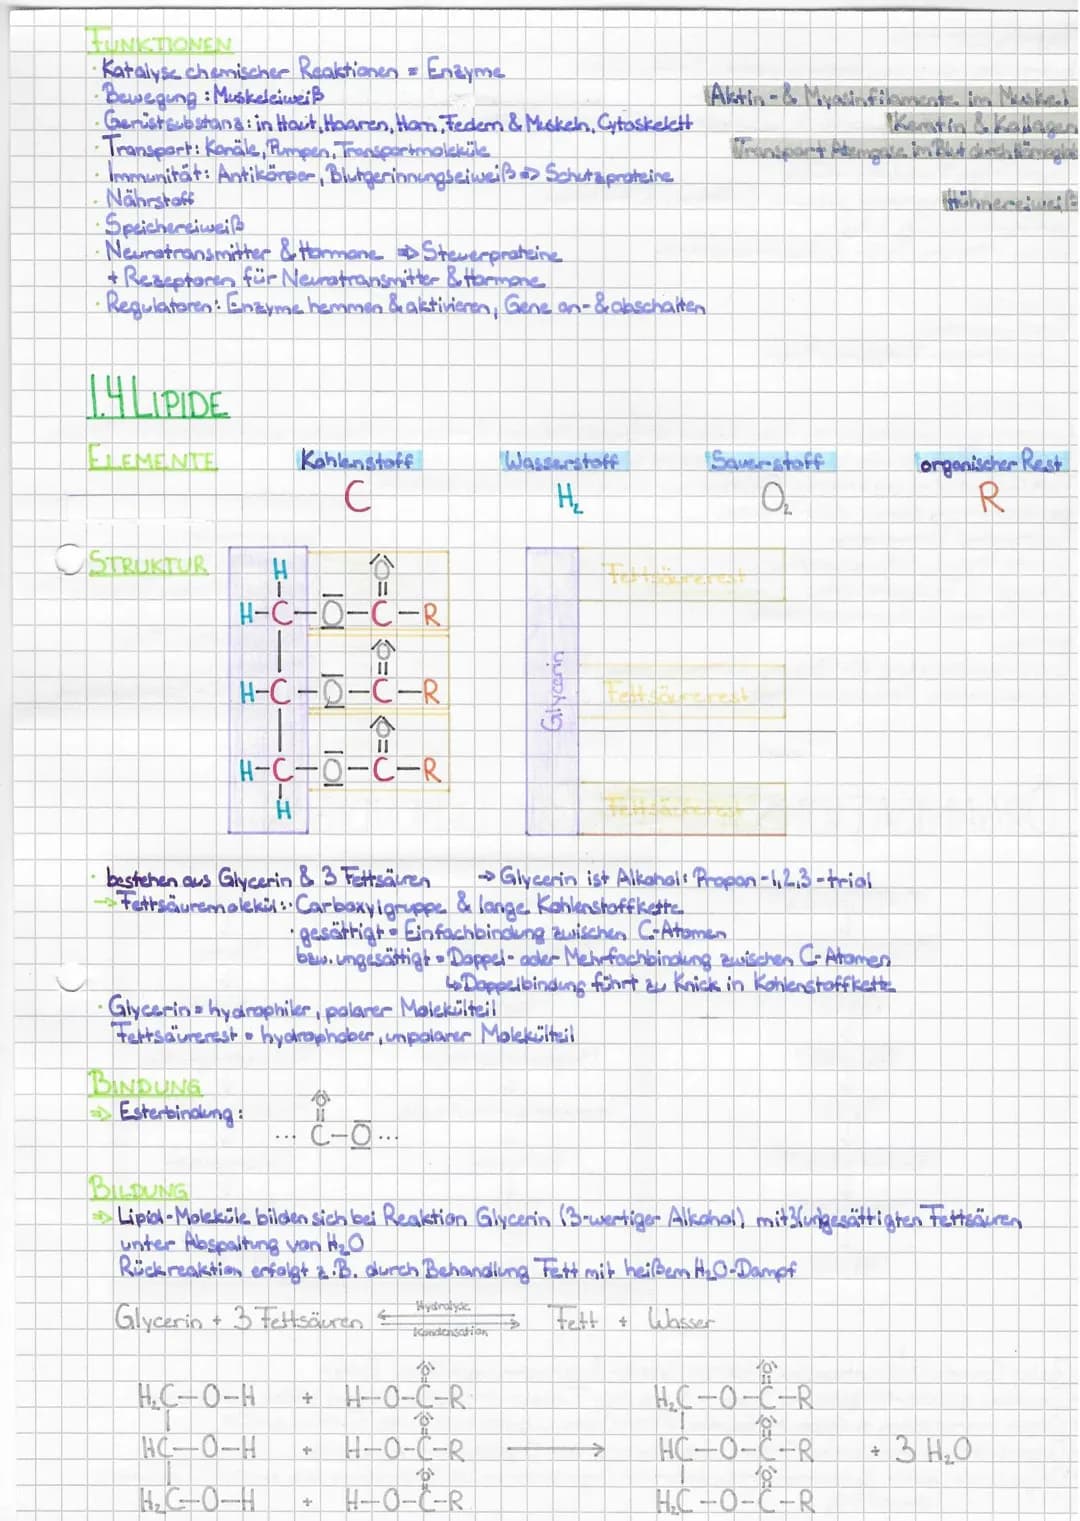 FUNKTIONEN
· Katalyse chemischer Reaktionen = Enzyme
· Bewegung : Muskeleiweiß Aktin - & Myosinfilamente im Muskel
· Gerüstsubstanz : in Haut, Haaren, Horn, Federn & Muskeln, Cytoskelett Keratin & Kollagen
· Transport : Kanäle, Pumpen, Transportmoleküle Transport Atemgase im Blut durch
· Immunität : Antikörper, Blutgerinnungseiweiß => Schutzproteine
· Nährstoff Hühnereiweiß
· Speichereiweiß
· Neurotransmitter & Hormone => Steuerproteine
+ Rezeptoren für Neurotransmitter & Hormone
· Regulatoren : Enzyme hemmen & aktivieren, Gene an- & abschalten
1.4 LIPIDE
ELEMENTE Kohlenstoff Wasserstoff Sauerstoff organischer Rest
C H₂ O₂ R
STRUKTUR
H O
H-C-O-C-R Fettsäurerest
O
H-C-O-C-R Glycerin Fettsäurerest
O
H-C-O-C-R
H Fettsäurerest
· bestehen aus Glycerin & 3 Fettsäuren → Glycerin ist Alkohol : Propan-1,2,3-triol
→ Fettsäuremolekül : · Carboxylgruppe & lange Kohlenstoffkette
· gesättigt = Einfachbindung zwischen C-Atomen
bzw. ungesättigt = Doppel- oder Mehrfachbindung zwischen C-Atomen
↳ Doppelbindung führt zu Knick in Kohlenstoffkette
· Glycerin = hydrophiler, polarer Molekülteil
Fettsäurerest = hydrophober, unpolarer Molekülteil
BINDUNG
=> Esterbindung :
O
... C-O ...
BILDUNG
=> Lipid-Moleküle bilden sich bei Reaktion Glycerin (3-wertiger Alkohol) mit 3 (un)gesättigten Fettsäuren
unter Abspaltung von H₂O
Rückreaktion erfolgt z.B. durch Behandlung Fett mit heißem H₂O-Dampf
Hydrolyse
Glycerin + 3 Fettsäuren ⇌ Fett + Wasser
Kondensation
O O
H₂C-O-H + H-O-C-R H₂C-O-C-R
O O
HC-O-H + H-O-C-R → HC-O-C-R + 3 H₂O
O O
H₂C-O-H + H-O-C-R H₂C-O-C-R